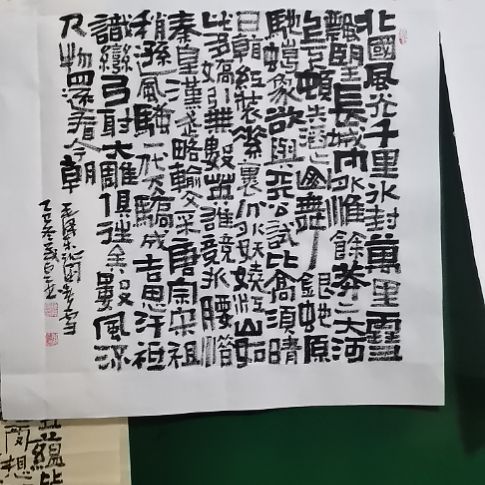 北國風光千里冰封萬里雪
飄望長城內外惟餘莽〻大河
上下頓失滔〻山舞銀蛇原
馳蠟象欲與天公試比高須晴
日觀紅裝素裹分外妖嬈江山如
此多嬌引無數英雄競折腰惜
秦皇漢武略輸文采唐宗宋祖
稍遜風騷一代天驕成吉思汗祇
識彎弓射大雕俱往矣數風流
人物還看今朝
毛澤東沁園春雪
乙巳冬